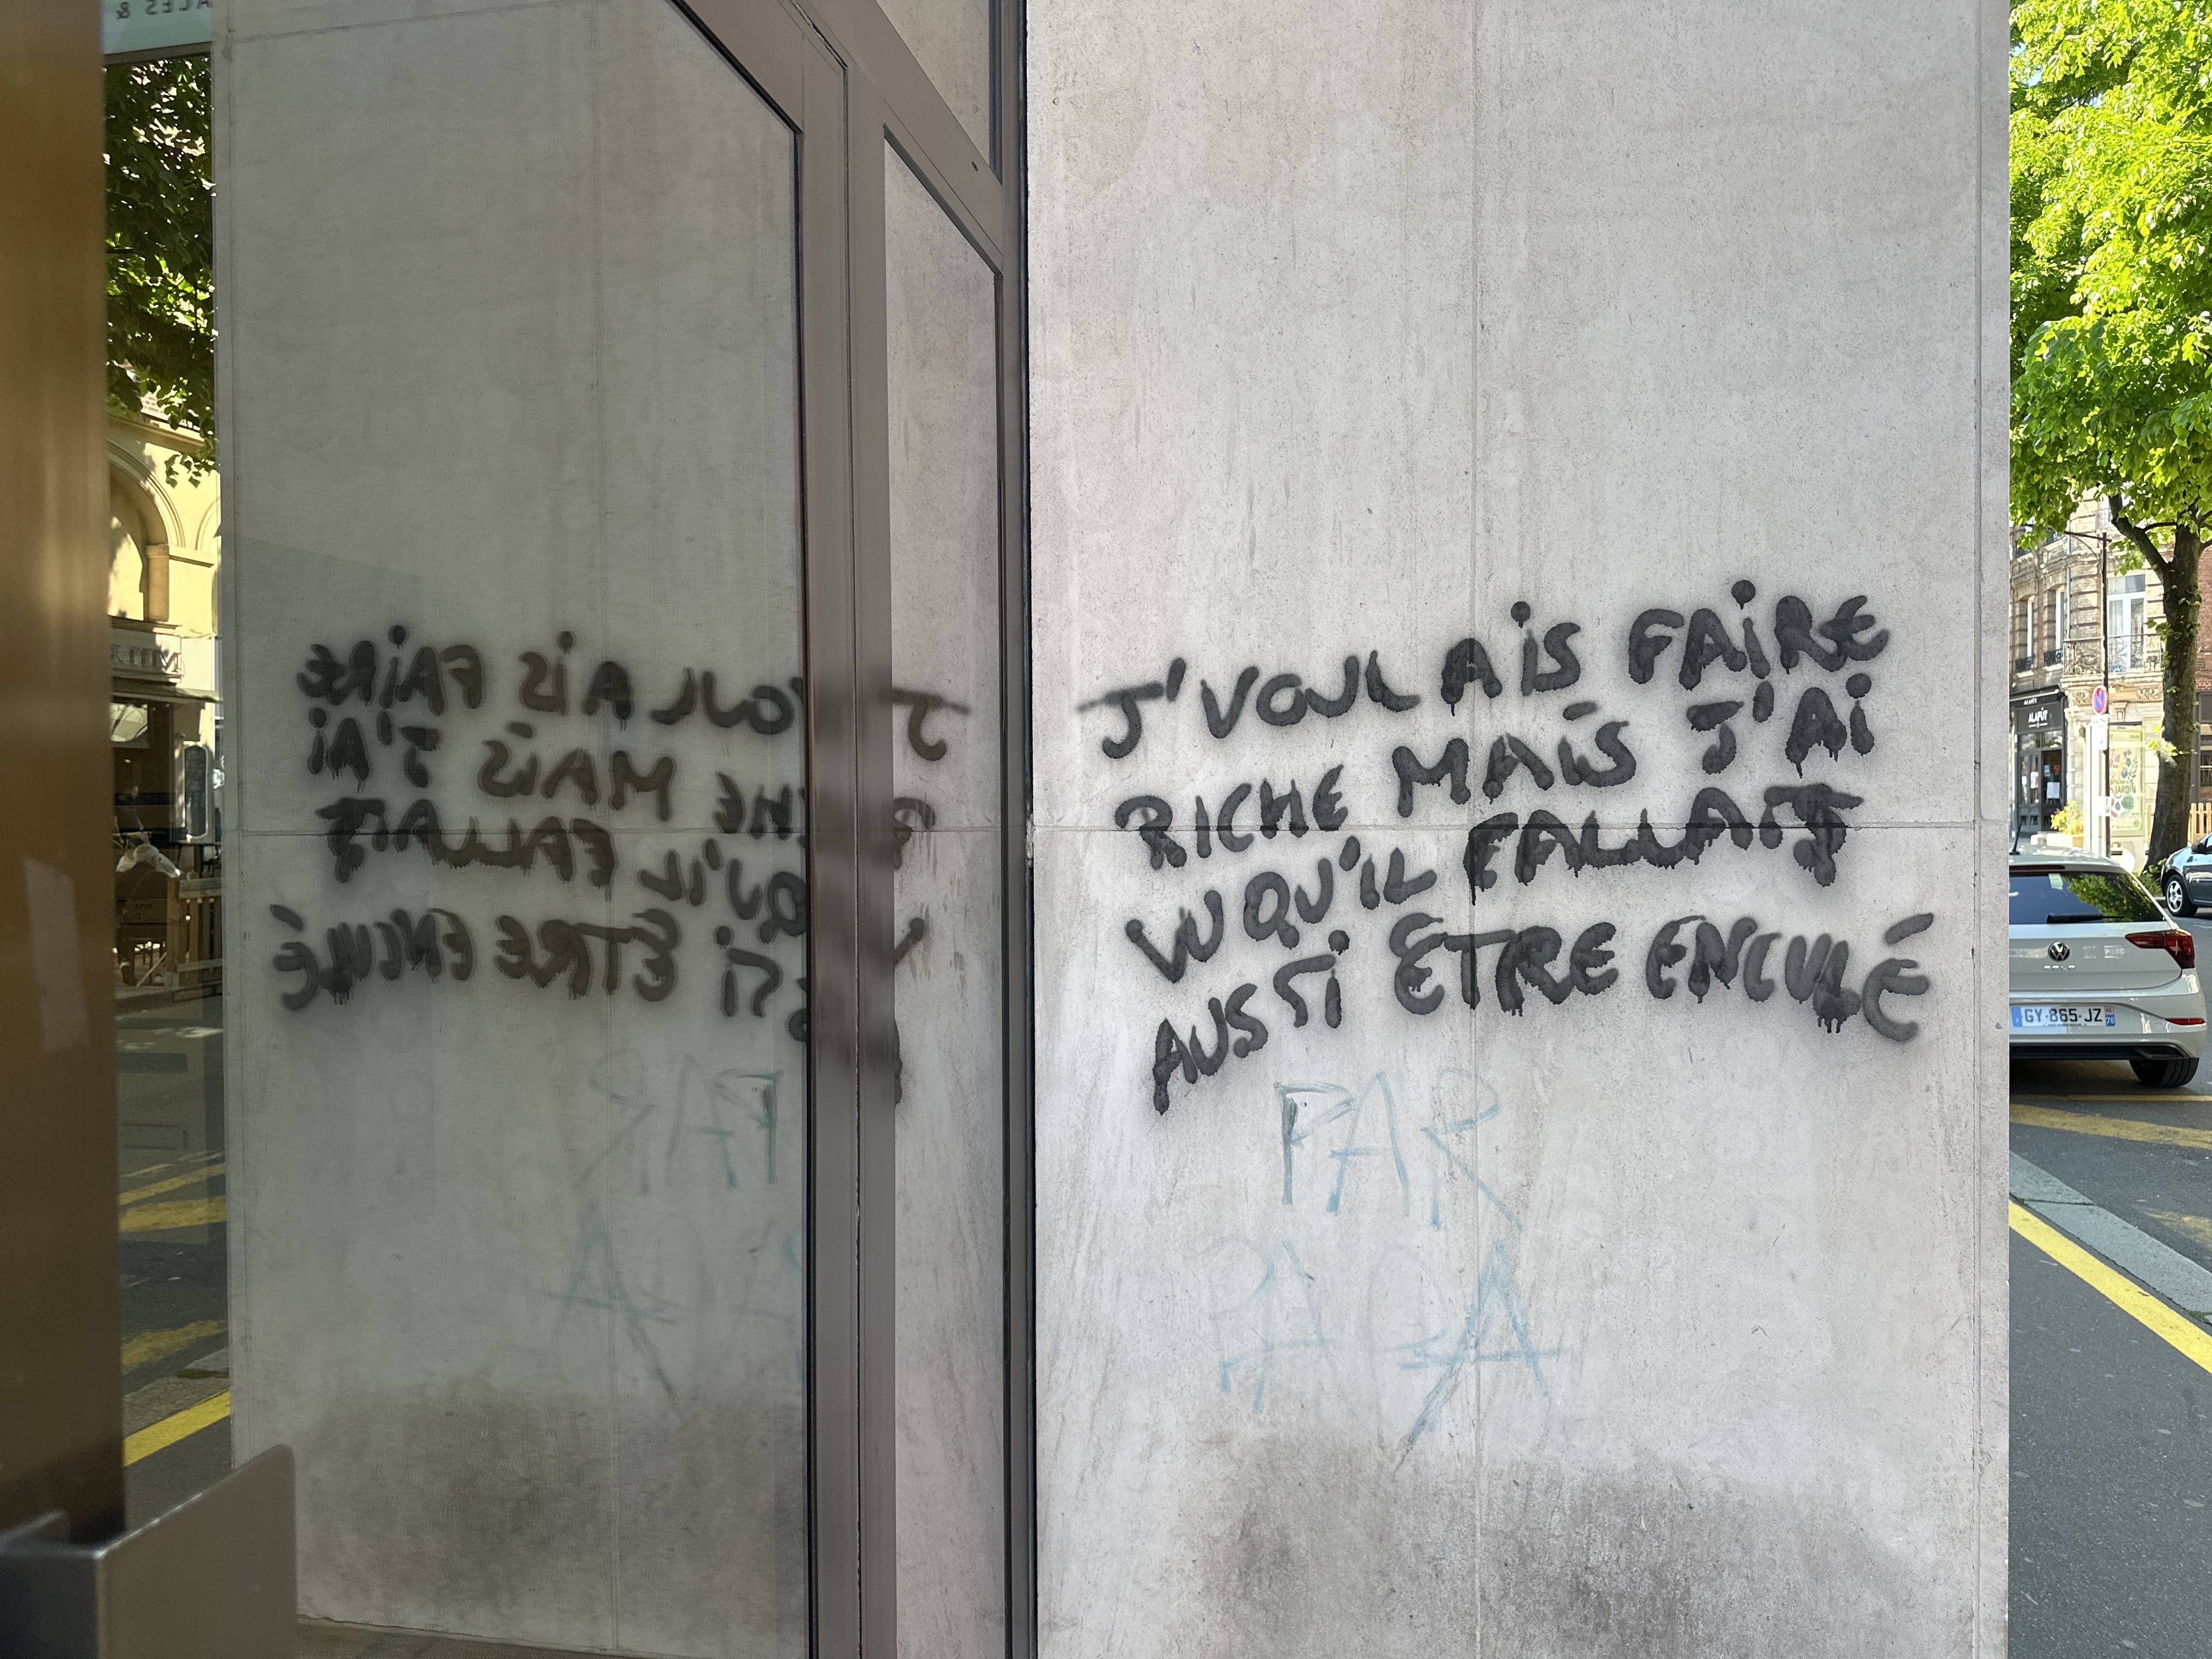 J'VOULAIS FAIRE
RICHE MAIS J'AI
VU QU'IL FALLAIT
AUSSI ÊTRE ENCULÉ
PAR
PAPA
ALAFÛT
GY-865-JZ